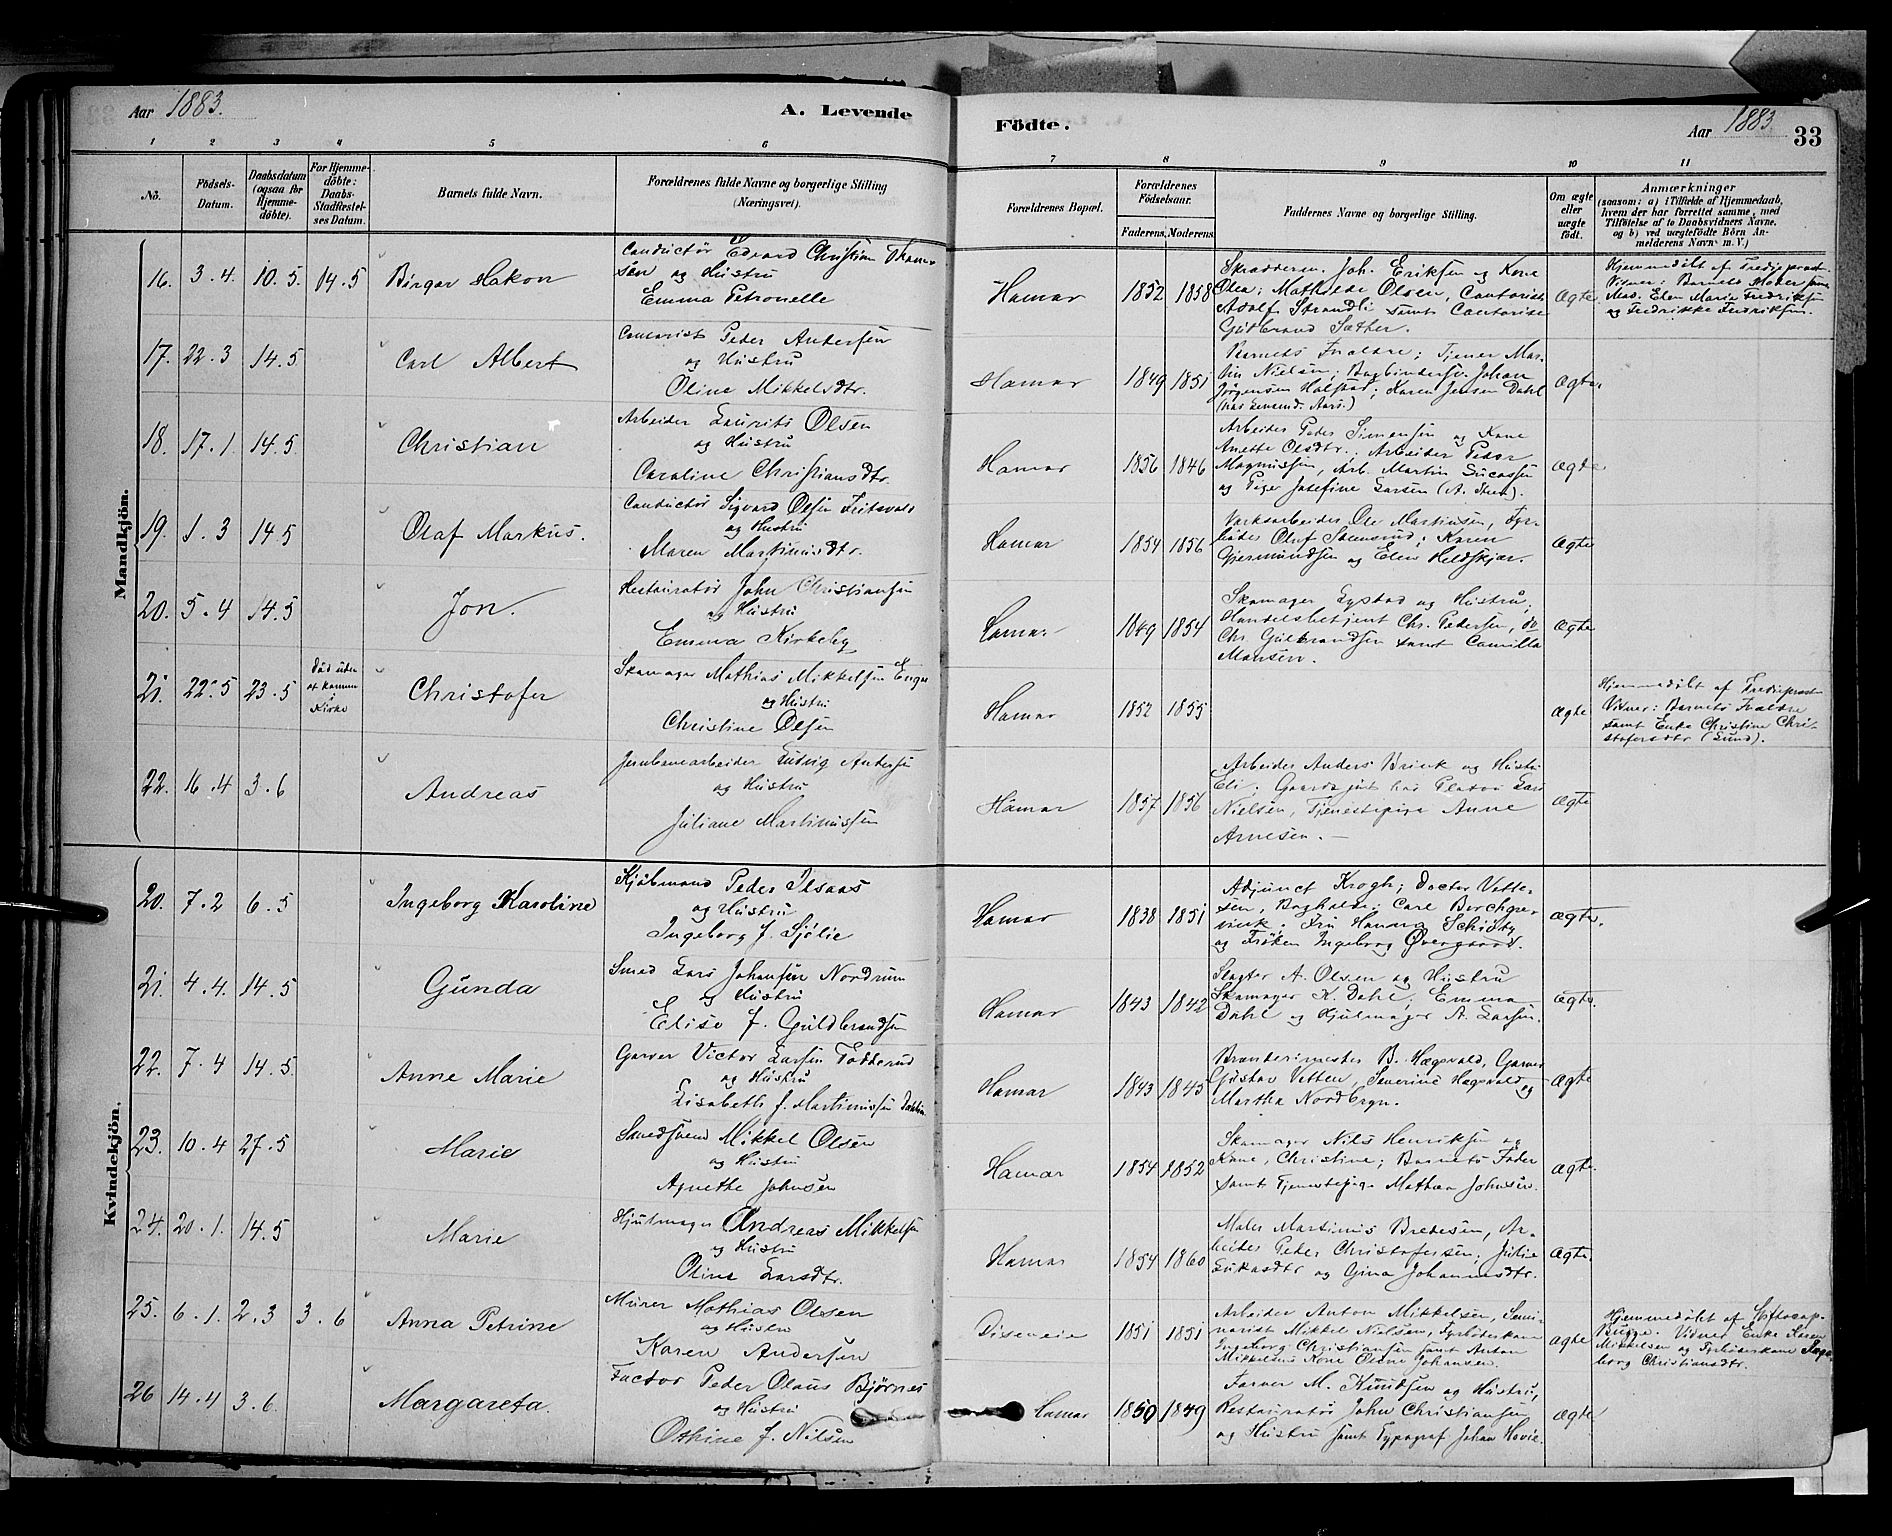 Aar 1883. A. Levende Födte. Aar 1883. 33
1 2 3 4 5 6 7 8 9 10 11
No. Födsels-Datum. Daabsdatum (ogsaa for Hjemmedöbte). For Hjemmedöbte: Daabs-Stadfæstelses Datum. Barnets fulde Navn. Forældrenes fulde Navne og borgerlige Stilling (Næringsvei). Forældrenes Bopæl. Forældrenes Födselsaar. Faderens. Moderens. Faddernes Navne og borgerlige Stilling. Om ægte eller uægte födt. Anmærkninger (saasom: a) i Tilfælde af Hjemmedaab, hvem der har forrettet samme, med Tilföielse af to Daabsvidners Navne, og b) ved uægtefödte Börn Anmelderens Navn m. V.)
Mandkjön.
16. 3.4 10.5. 14.5 Birger Hakon
Conductør Edvard Christian Thomsen og Hustru
Emma Petronelle
Hamar 1852 1858
Skrædderm. Joh. Eriksen og Kone
Olea; Mathilde Olsen, Contorist
Adolf Strandli samt Contorist
Gulbrand Sæther.
Ægte
Hjemmedøbt af
Vidner: Barnets Moder
Mad. Elen Marie Fredriksen
og Fredrikke Fredriksen.
17. 22.3 14.5 Carl Albert
Contorist Peder Andersen
og Hustru
Oline Mikkelsdtr.
Hamar 1849 1851
Barnets Forældre; Tjener Martin Nielsen; Bogbindersv. Johan
Jørgensen Halstad; Karen Jensen Dahl
Ægte.
18. 17.1 14.5 Christian
Arbeider Laurits Olsen
og Hustru
Caroline Christiansdtr.
Hamar 1856 1846
Arbeider Peder Simensen og Kone
Anette Olsdtr.; Arbeider Peder
Magnussen, Arb. Martin
og Pige Josefine Larsen
Ægte
19. 1.3 14.5 Olaf Markus.
Conductør Sigvard Olsen
og Hustru
Maren Martinusdtr.
Hamar 1854 1856
Værksarbeider Ole Martinsen, Fyrbøder Oluf Stensrud; Karen
Gjermundsen og Elen
Ægte
20. 5.4 14.5 Jon.
Restauratør John Christiansen
og Hustru
Emma Kirkeby
Hamar 1849 1854
Skomager Lystad og Hustru;
Handelsbetjent Chr. Pedersen, do
Chr. Gulbrandsen samt Camilla
Monsen.
Ægte
21. 22.5 23.5 Död uden at komme i Kirke Christofer
Skomager Mathias Mikkelsen Enger
og Hustru
Christine Olsen
Hamar 1852 1855
Ægte
Hjemmedøbt af
Vidner: Barnets Forældre
samt Enke Christine Christofersdtr (Lund).
22. 16.4 3.6 Andreas
Jernbanearbeider Ludvig Andersen
og Hustru
Juliane Martinussen
Hamar 1857 1856
Arbeider Anders Brink og Hustru
Eli; Gaardsgut
Nielsen, Tjenestepige Anne
Arnesen.
Ægte
Kvindekjön.
20. 7.2 6.5 Ingeborg Karoline
Kjøbmand Peder Ilsaas
og Hustru
Ingeborg f. Sjølie
Hamar 1838 1851
Adjunct Krogh; Doctor Vettesen, Bogholder Carl Borchgrevink; Fru Hanna Schiøtz
og Frøken Ingeborg Overgaard.
Ægte.
21. 4.4. 14.5 Gunda
Smed Lars Johansen Nordrum
og Hustru
Elise f. Guldbrandsen
Hamar 1843 1842
Slagter A. Olsen og Hustru
Skomager K. Dahl; Emma
Dahl og Hjulmager A. Larsen.
Ægte.
22. 7.4 14.5. Anne Marie
Garver Victor Larsen Fodderud
og Hustru
Lisabeth f. Martinussen
Hamar 1843 1843
Brændermester B. Hægsvald, Garver
Gustav Vetten, Severine Hægsvald og
Martha
Ægte
23. 10.4 27.5 Marie
Smedsvend Mikkel Olsen
og Hustru
Agnethe Johnsen
Hamar 1854 1852
Skomager Nils Henriksen og
Kone, Christine; Barnets Fader
samt Tjenestepige Mathea Johnsen.
Ægte.
24. 20.1. 14.5 Marie
Hjulmager Andreas Mikkelsen
og Hustru
Oline Larsdtr.
Hamar 1854 1860
Maler Martinus Bredesen, Arbeider Peder Christofersen; Julie
Lukasdtr og Gina Johannesdtr.
Ægte.
25. 6.1. 2.3 3.6 Anna Petrine
Murer Mathias Olsen
og Hustru
Karen Andersen
Diseneie 1851 1851
Arbeider Anton Mikkelsen, Seminarist Mikkel Nielsen, Fyrbøderkone
Ingeborg Christiansen samt Anton
Mikkelsens Kone Oline Johansen.
Ægte
Hjemmedøbt af Stiftscap.
Bugge. Vidner Enke Karen
Mikkelsen og Fyrbøderkone Ingeborg Christiansdtr.
26 14.4 3.6. Margareta.
Factor Peder Olaus Bjørnes
og Hustru
Othine f. Nilsen
Hamar 1850 1849
Farver M. Knudsen og Hustru,
Restauratør John Christiansen
og Hustru samt Typograf Johan Hovie.
Ægte